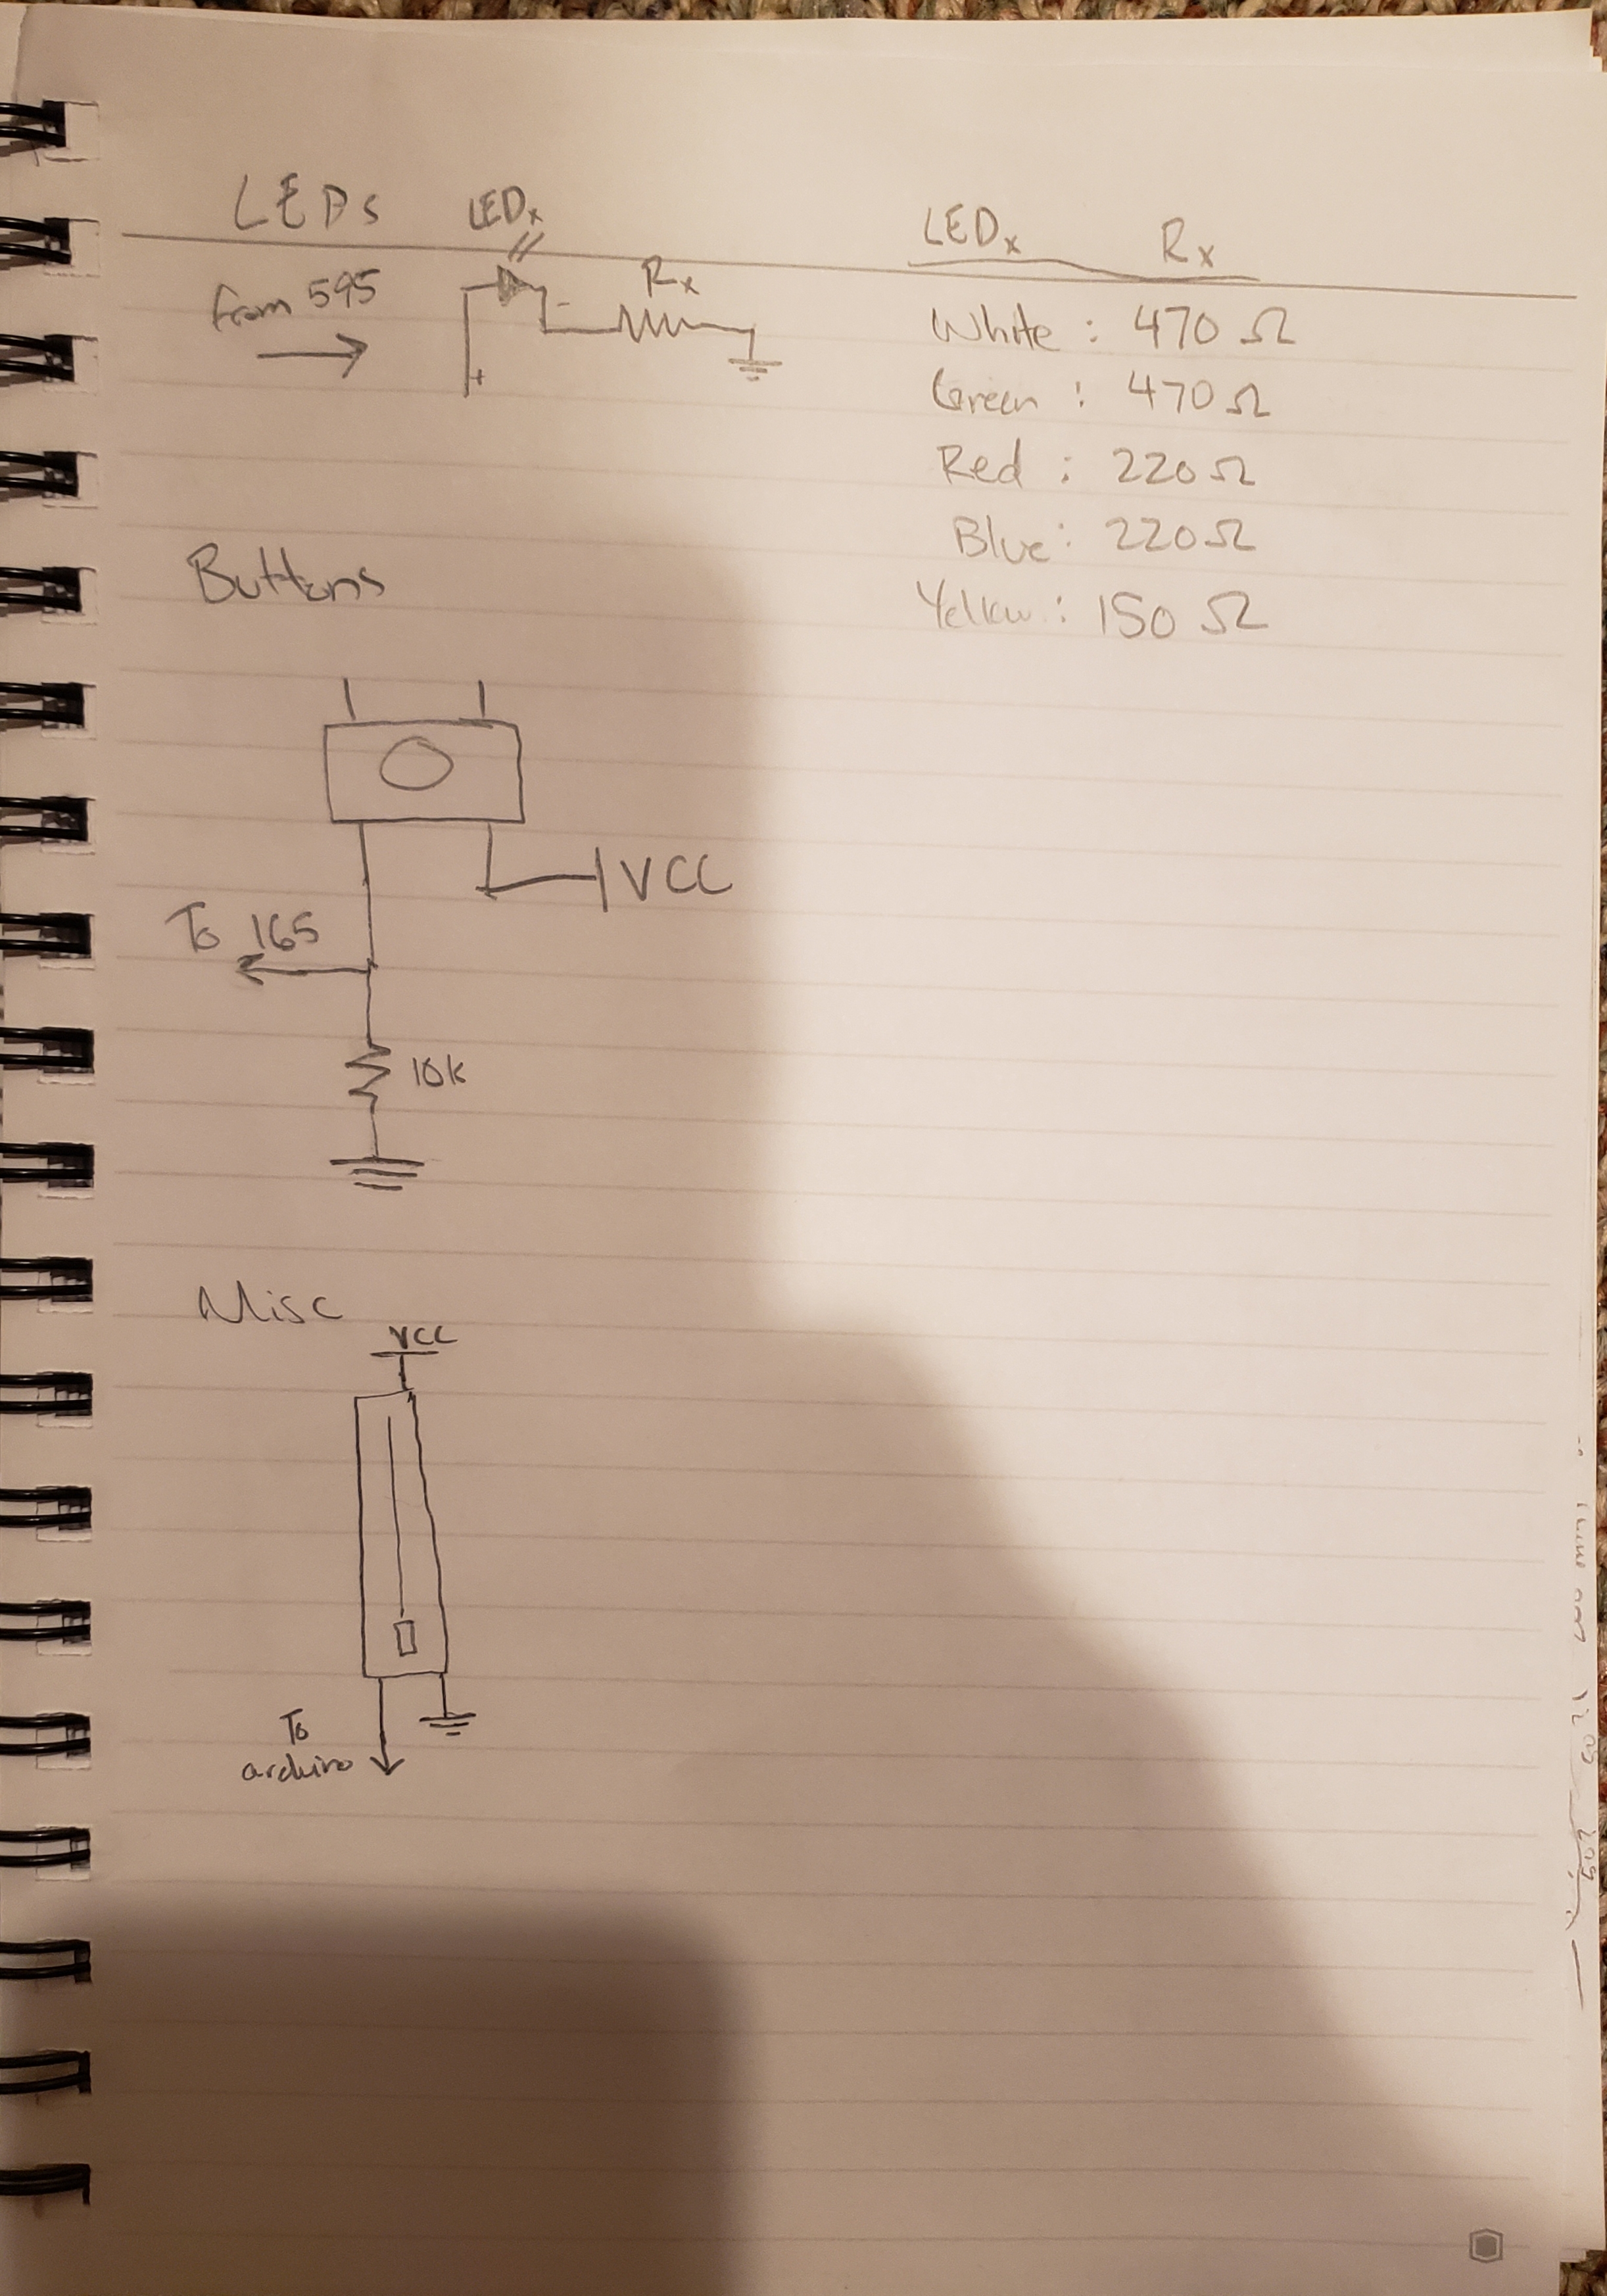 LEDs
LEDx
from 595
+
-
Rx
LEDx Rx
White : 470 Ω
Green : 470 Ω
Red : 220 Ω
Blue : 220 Ω
Yellow : 150 Ω
Buttons
VCC
To 165
10k
Misc
VCC
To
arduino